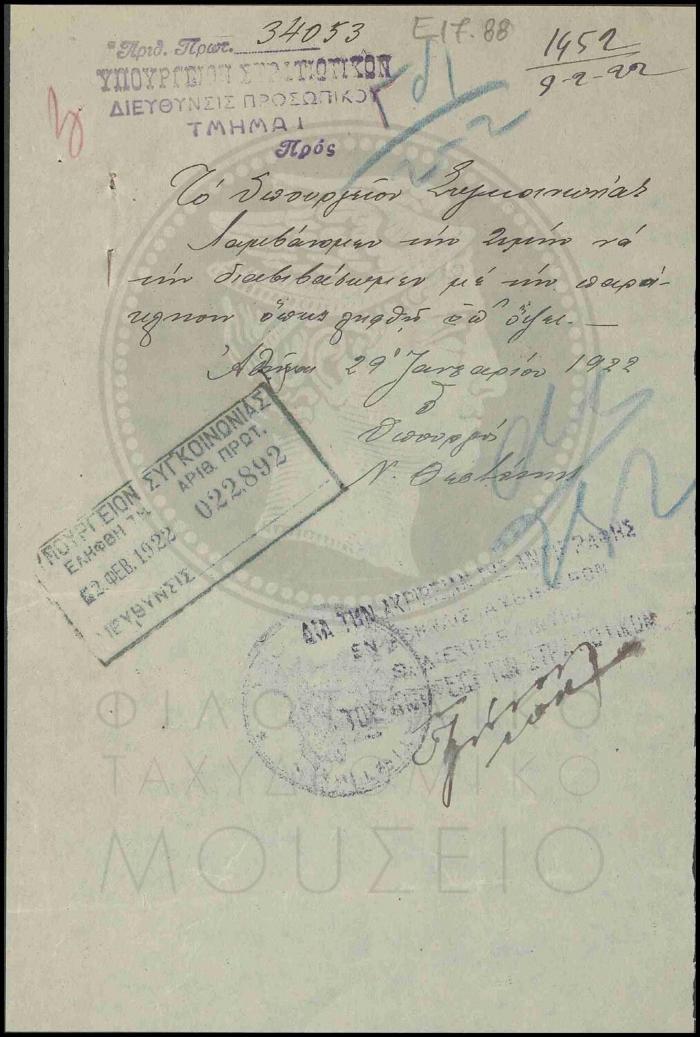 Ἀριθ. Πρωτ. 34053
E17.88
1452
9-2-22
ΥΠΟΥΡΓΕΙΟΝ ΣΤΡΑΤΙΩΤΙΚΩΝ
ΔΙΕΥΘΥΝΣΙΣ ΠΡΟΣΩΠΙΚΟΥ
ΤΜΗΜΑ Ι
Πρός
Τό Ὑπουργεῖον Συγκοινωνίας
Λαμβάνομεν τήν τιμήν νά
τήν διαβιβάσωμεν μέ τήν παρά-
κλησιν ὅπως ληφθῇ ὑπ' ὄψει. —
Ἀθῆναι 29 Ἰανουαρίου 1922
Ὁ
Ὑπουργός
Ν. Θεοτόκης
ΠΟΥΡΓΕΙΟΝ ΣΥΓΚΟΙΝΩΝΙΑΣ
ΕΛΗΦΘΗ ΤΗ ΑΡΙΘ. ΠΡΩΤ.
2·ΦΕΒ.1922 022892
ΙΕΥΘΥΝΣΙΣ
ΔΙΑ ΤΗΝ ΑΚΡΙΒΕΙΑΝ ΤΗΣ ΑΝΤΙΓΡΑΦΗΣ
ΕΝ
ΤΟΥ ΥΠΟΥΡΓΕΙΟΥ ΤΩΝ ΣΤΡΑΤΙΩΤΙΚΩΝ
ΦΙΛΟΤΕΛΙΚΟ
ΤΑΧΥΔΡΟΜΙΚΟ
ΜΟΥΣΕΙΟ